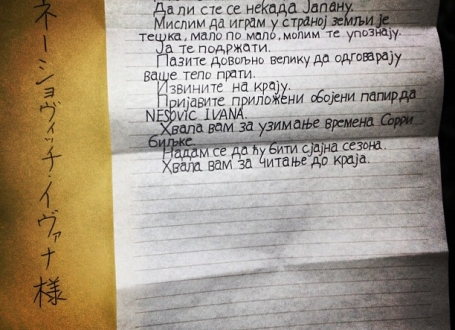 Да ли сте се некада Јапану.
Мислим да играм у страној земљи је
тешка, мало по мало, молим те упознају.
Ја те подржати.
Пазите довољно велику да одговарају
ваше тело прати.
Извините на крају.
Пријавите приложени обојени папир да
NESOVIC IVANA.
Хвала вам за узимање времена Сорри
биљке.
Надам се да ћу бити сјајна сезона.
Хвала вам за читање до краја.
ネーショヴィッチ・イヴァナ様